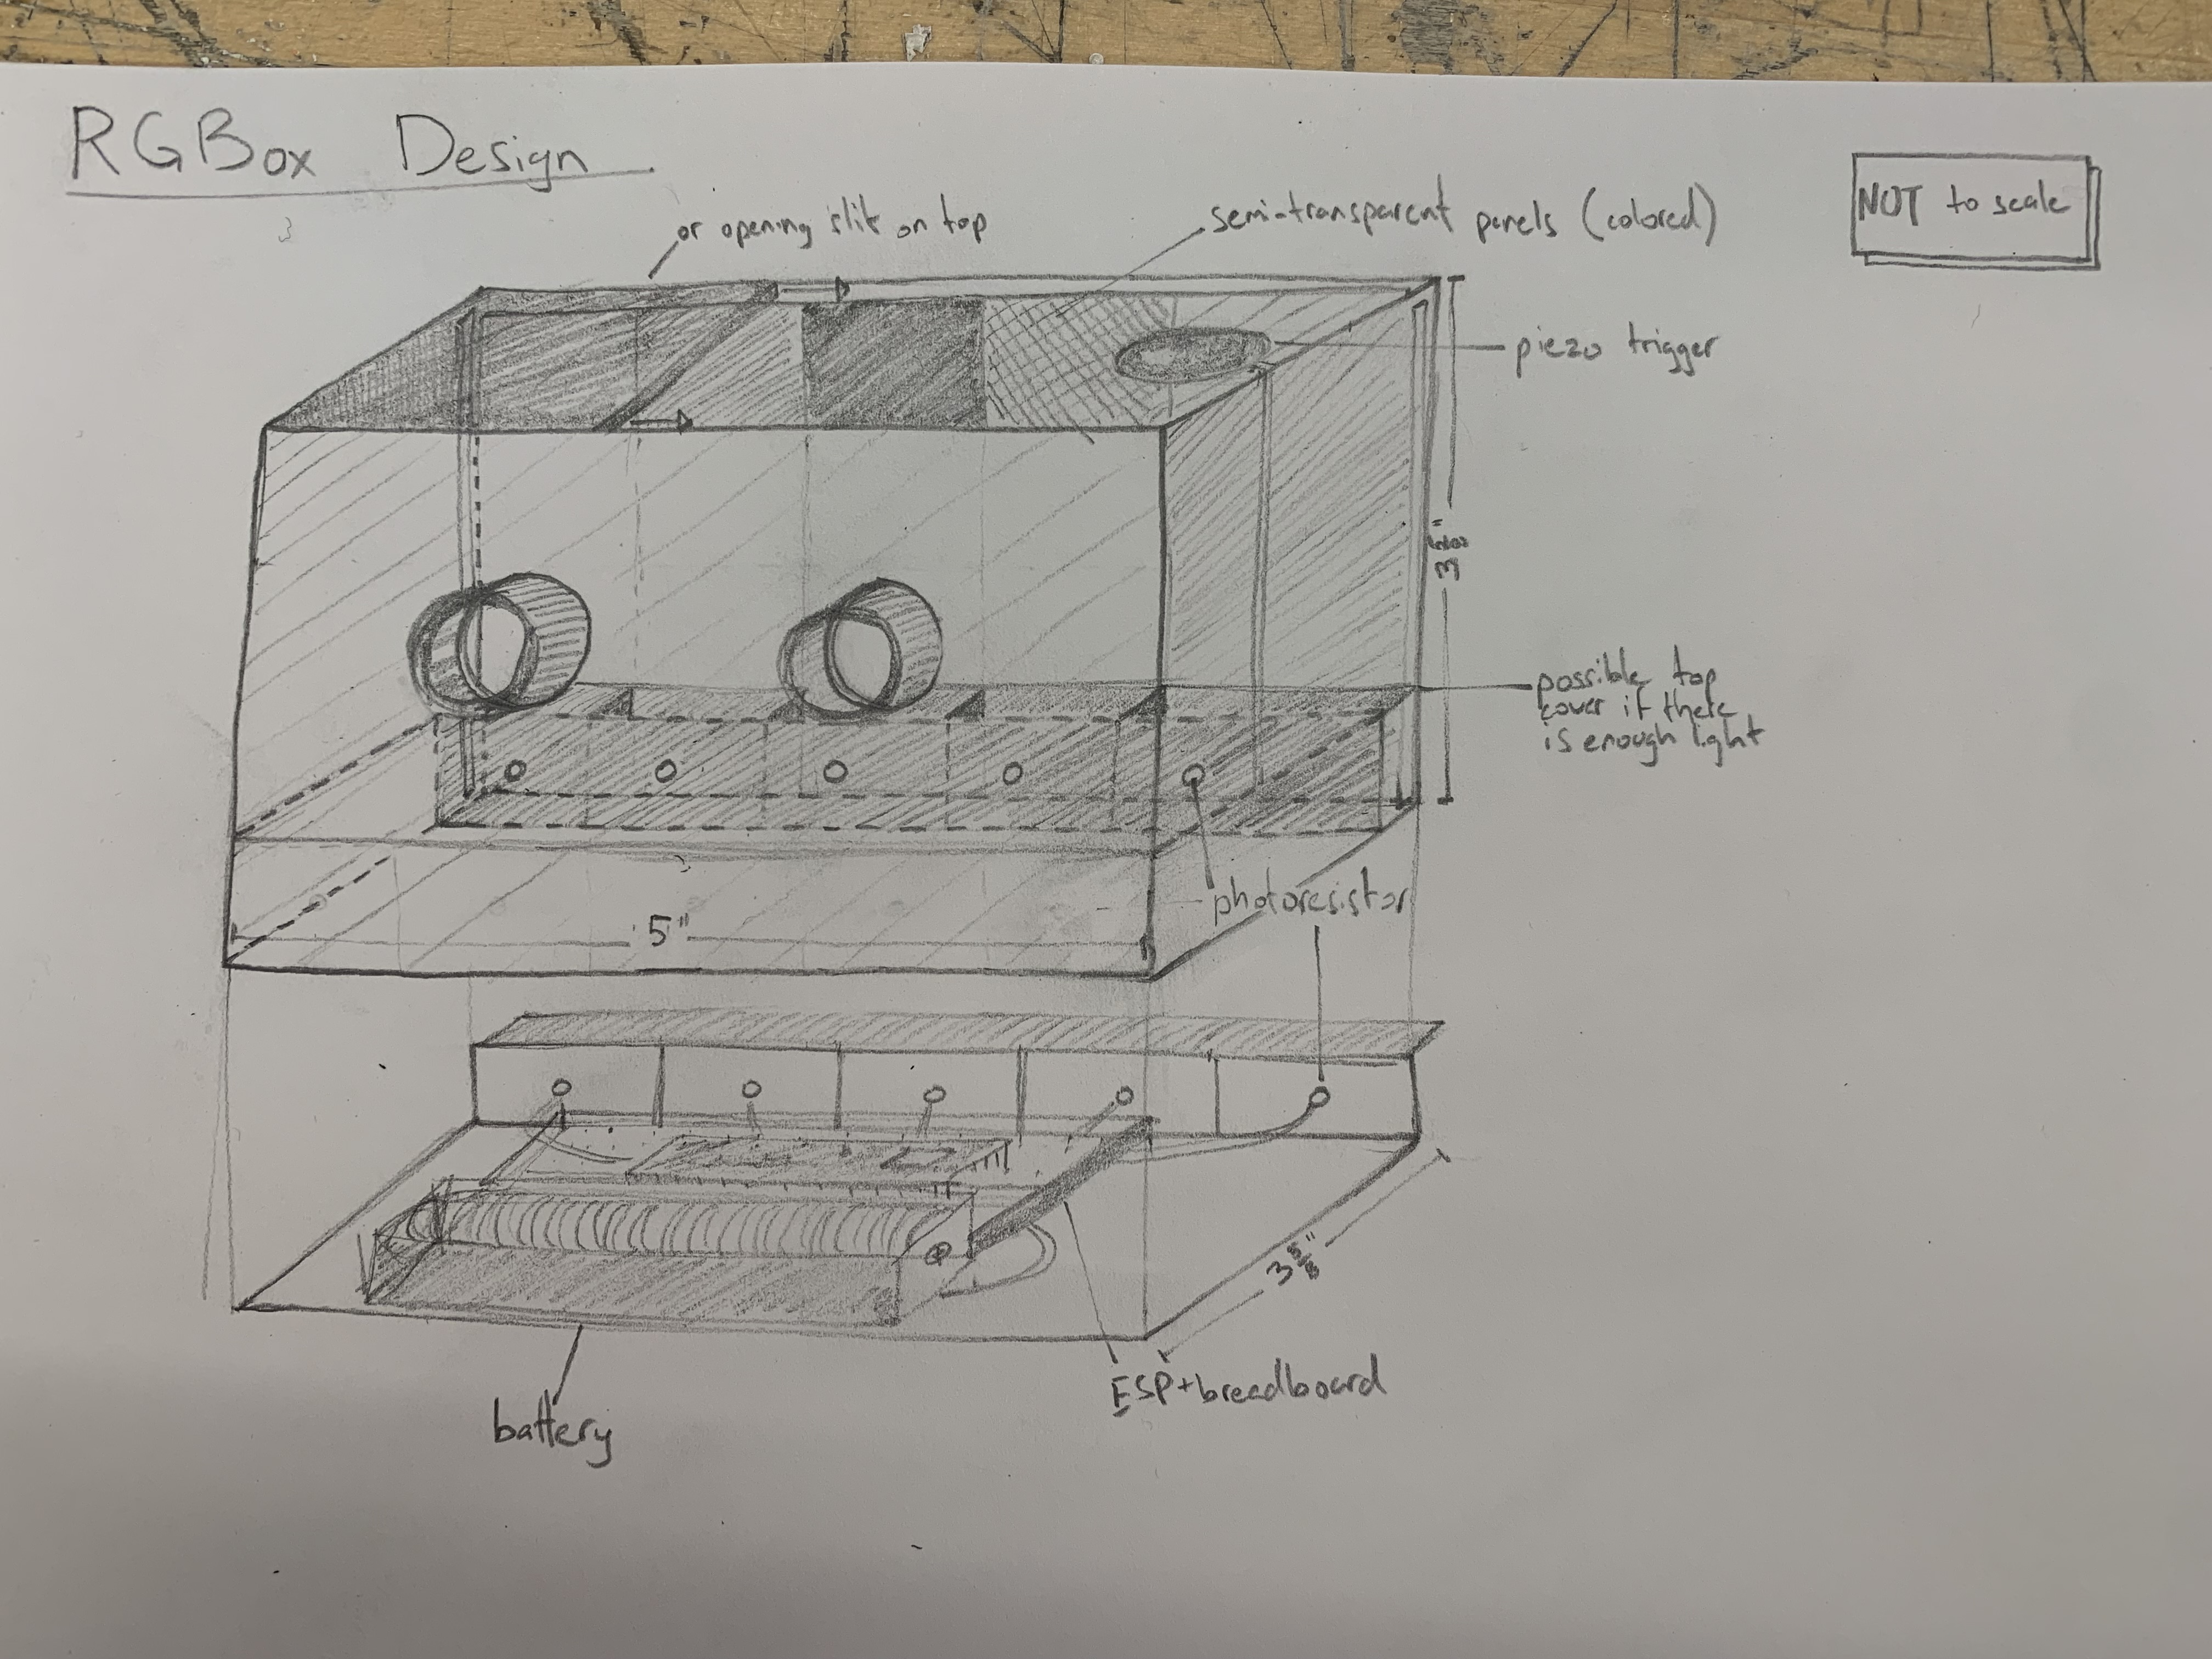 RGBox Design
NOT to scale
or opening slit on top
semi-transparent panels (colored)
piezo trigger
possible top
cover if there
is enough light
photoresistor
5"
3 5/8"
battery
ESP+breadboard